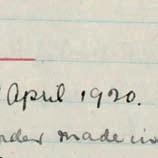 April 1920.
order made in